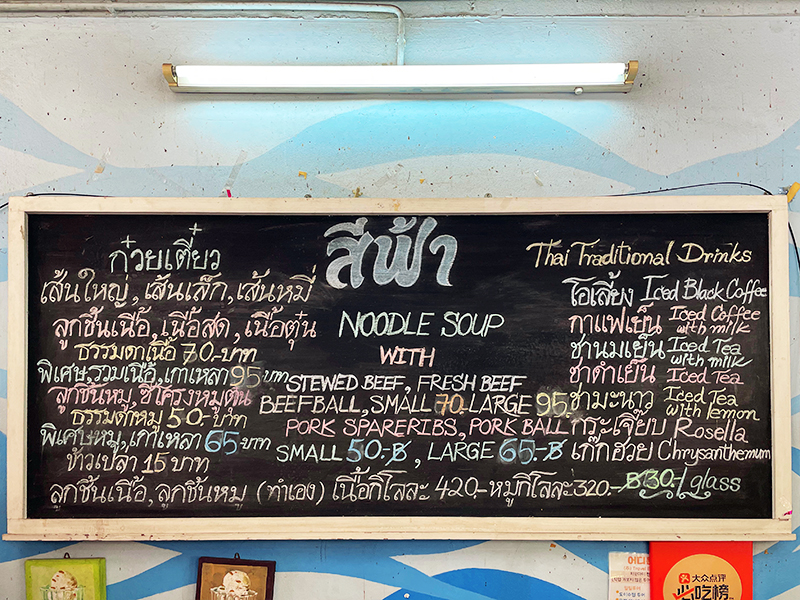 สีฟ้า
ก๋วยเตี๋ยว
เส้นใหญ่, เส้นเล็ก, เส้นหมี่
ลูกชิ้นเนื้อ, เนื้อสด, เนื้อตุ๋น
ธรรมดาเนื้อ 70.-บาท
พิเศษ, รวมเนื้อ, เกาเหลา 95 บาท
ลูกชิ้นหมู, ซี่โครงหมูตุ๋น
ธรรมดาหมู 50.-บาท
พิเศษหมู, เกาเหลา 65 บาท
ข้าวเปล่า 15 บาท
ลูกชิ้นเนื้อ, ลูกชิ้นหมู (ทำเอง) เนื้อกิโลละ 420.- หมูกิโลละ 320.-
NOODLE SOUP
WITH
STEWED BEEF, FRESH BEEF
BEEFBALL, SMALL 70. LARGE 95.
PORK SPARERIBS, PORK BALL
SMALL 50.-฿, LARGE 65.-฿
Thai Traditional Drinks
โอเลี้ยง Iced Black Coffee
กาแฟเย็น Iced Coffee with milk
ชานมเย็น Iced Tea with milk
ชาดำเย็น Iced Tea
ชามะนาว Iced Tea with lemon
กระเจี๊ยบ Rosella
เก๊กฮวย Chrysanthemum
฿30.-/glass
大众点评
必吃榜